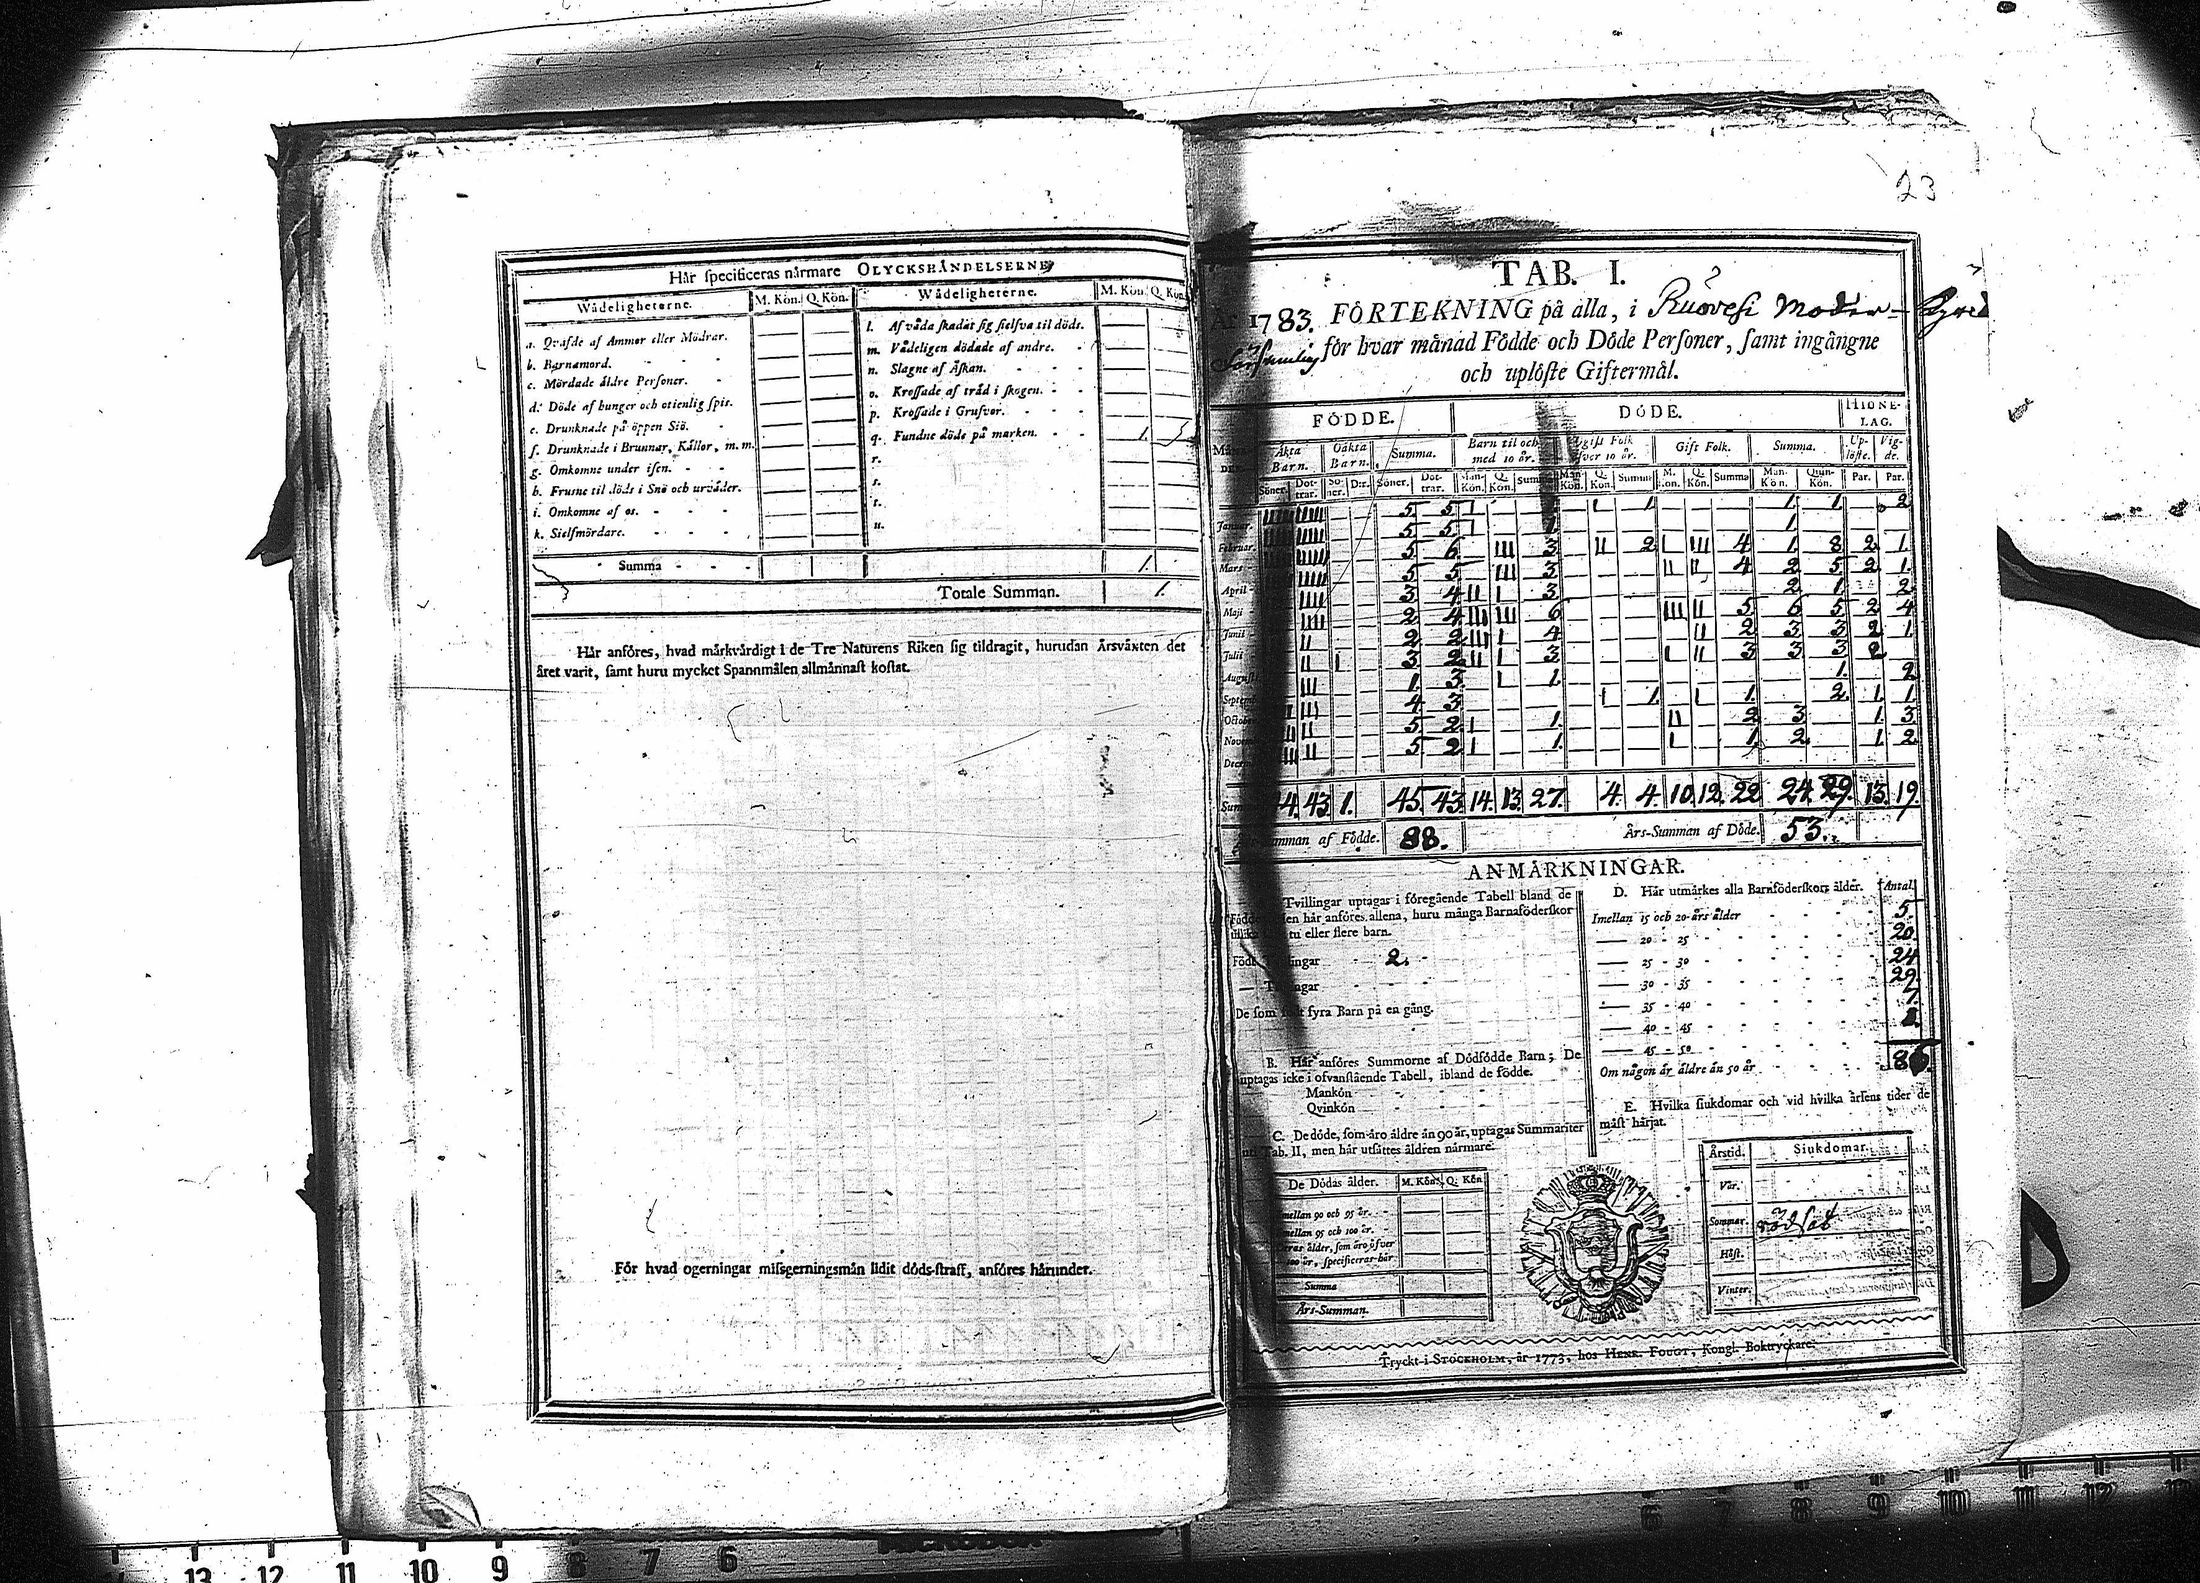 23
Här specificeras närmare OLYCKSHÄNDELSERNE
Wådeligheterne. M. Kön. Q. Kön. Wådeligheterne. M. Kön. Q. Kön.
a. Qvafde af Ammor eller Mödrar.
b. Barnamord.
c. Mördade äldre Personer.
d. Döde af hunger och otienlig spis.
e. Drunknade på öppen Siö.
f. Drunknade i Brunnar, Källor, m. m.
g. Omkomne under isen.
h. Frusne til döds i Snö och urväder.
i. Omkomne af os.
k. Sielfmördare.
l. Af våda skadat sig sielfva til döds.
m. Vådeligen dödade af andre.
n. Slagne af Åskan.
o. Krossade af träd i skogen.
p. Krossade i Grufvor.
q. Fundne döde på marken. 1.
r.
s.
t.
u.
Summa 1.
Totale Summan. 1.
Här anföres, hvad märkvärdigt i de Tre Naturens Riken sig tildragit, hurudan Årsväxten det
året varit, samt huru mycket Spannmålen allmännast kostat.
För hvad ogerningar missgerningsmän lidit döds-straff, anföres härunder.
TAB. I.
År 1783. FÖRTEKNING på alla, i Ruovesi Moder-Kyrko
Församling för hvar månad Födde och Döde Personer, samt ingångne
och uplöste Giftermål.
FÖDDE. DÖDE. HIONE-LAG.
Äkta Barn. Oäkta Barn. Summa. Barn til och med 10 år. Ogift Folk öfver 10 år. Gift Folk. Summa. Up-löste. Vig-de.
Söner. Döt-trar. Sö-ner. Dt:r. Söner. Döt-trar. Man-Kön. Q. Kön. Summa Man-Kön. Q. Kön. Summa M. Kön. Q. Kön. Summa Man-Kön. Quin-Kön. Par. Par.
Januar. 5 5 1 1 1. 1. 1. 2
Februar. 5 5 1 1. 1.
Mars 5 6. III 3 II 2 I III 4 1. 8 2 1.
April 5 5 III 3 II II 4 2 5 2 1.
Maji 3 4 II I 3. 2 1. 2.
Junii 2 4 III III 6 III II 5 6 5 2 4
Julii 2 2 III I 4 II 2 3 3 2 1.
August. 3 2 II I 3 I II 3 3 3 2
Septemb. 1. 3 I 1. 1. 2
Octobr. 4 3 I 1. I 1. 2. 1. 1.
Novem. 5 2 I 1. II 2 3 1. 3.
Decem. 5 2 I 1. I 1. 2. 1. 2
44. 43 1. 45. 43 14. 13. 27. 4. 4. 10. 12. 22 24 29. 13. 19.
Års-Summan af Födde. 88. Års-Summan af Döde. 53.
ANMÄRKNINGAR.
Tvillingar uptagas i föregående Tabell bland de
här anföres allena, huru många Barnaföderskor
tu eller flere barn.
2.
De som födt fyra Barn på en gång.
B. Här anföres Summorne af Dödfödde Barn; De
uptagas icke i ofvanstående Tabell, ibland de födde.
Mankön
Qvinkön
C. De döde, som äro äldre än 90 år, uptagas Summariter
uti Tab. II, men här utsättes åldren närmare.
De Dödas ålder. M. Kön. Q. Kön
Imellan 90 och 95 år.
Imellan 95 och 100 år.
Deras ålder, som äro öfver
100 år, specificeras här
Summa
Års-Summan.
D. Här utmärkes alla Barnföderskors ålder. Antal
Imellan 15 och 20 års ålder 5.
20 - 25 20.
25 - 30 24
30 - 35 29
35 - 40 7.
40 - 45 1.
45 - 50
Om någon är äldre än 50 år 86.
E. Hvilka siukdomar och vid hvilka årsens tider de
mäst härjat.
Årstid. Siukdomar.
Vår.
Sommar. rödsot
Höst.
Vinter.
Tryckt i STOCKHOLM, år 1773, hos HENR. FOUGT, Kongl. Boktryckare.
13 12 11 10 9 8 7 6
6 7 8 9 10 11 12 13